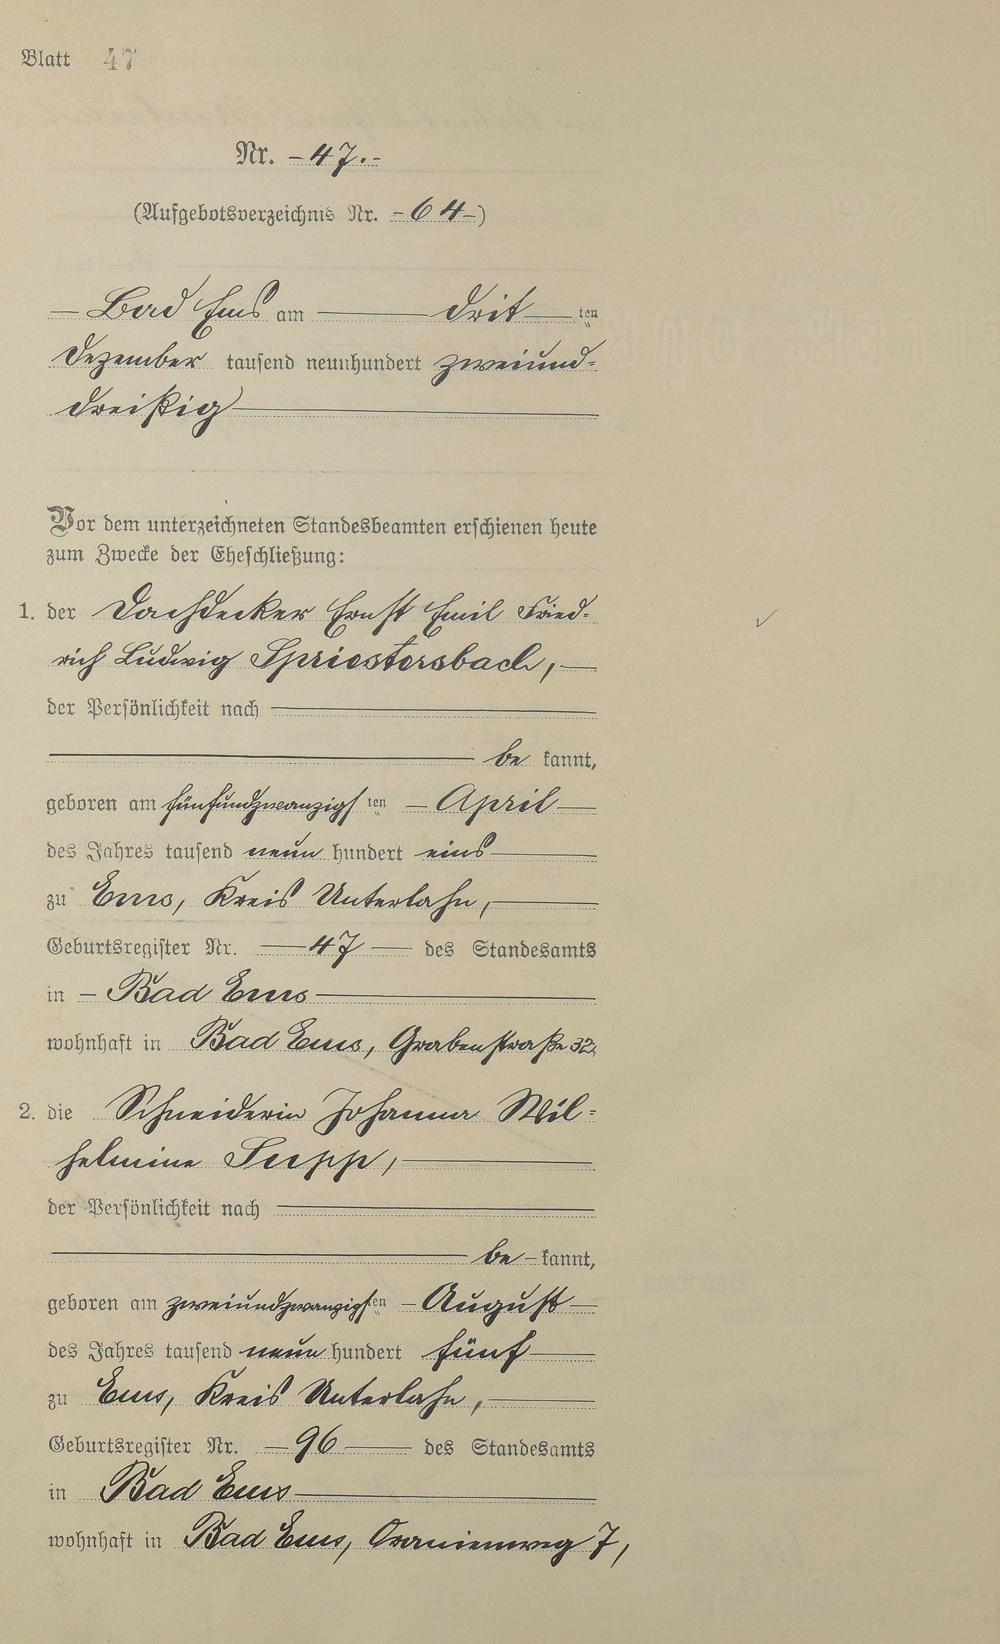 Blatt 47
Nr. - 47. -
(Aufgebotsverzeichnis Nr. - 64 -)
— Bad Ems am — drit — ten
Dezember tausend neunhundert zweiund-
dreißig —
Vor dem unterzeichneten Standesbeamten erschienen heute
zum Zwecke der Eheschließung:
1. der Dachdecker Ernst Emil Fried-
rich Ludwig Spriestersbach, —
der Persönlichkeit nach —
— be kannt,
geboren am fünfundzwanzigsten — April —
des Jahres tausend neun hundert eins —
zu Ems, Kreis Unterlahn, —
Geburtsregister Nr. — 47 — des Standesamts
in — Bad Ems —
wohnhaft in Bad Ems, Grabenstraße 32,
2. die Schneiderin Johanna Wil-
helmine Supp, —
der Persönlichkeit nach —
— be — kannt,
geboren am zweiundzwanzigsten — August —
des Jahres tausend neun hundert fünf —
zu Ems, Kreis Unterlahn, —
Geburtsregister Nr. — 96 — des Standesamts
in Bad Ems —
wohnhaft in Bad Ems, Oranienweg 7,